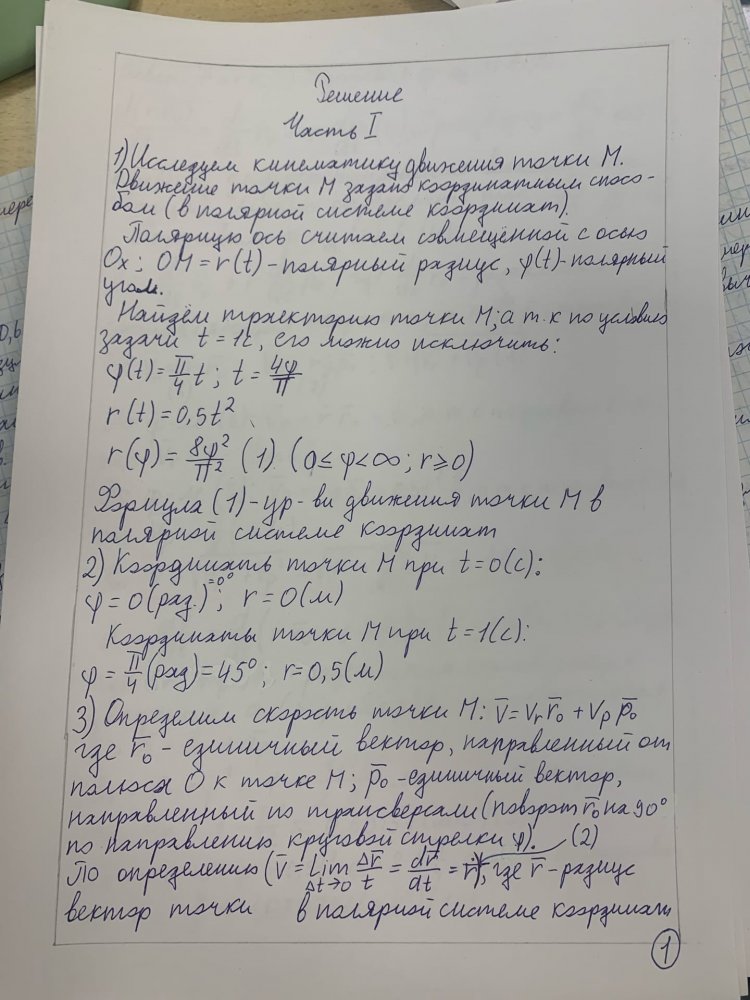 Решение
Часть I
1) Исследуем кинематику движения точки М.
Движение точки М задано координатным спосо-
бом (в полярной системе координат).
Полярную ось считаем совмещённой с осью
Ох; ОМ = r(t) - полярный радиус, φ(t) - полярный
угол.
Найдём траекторию точки М; а т.к по условию
задачи t = 1c, его можно исключить:
φ(t) = π/4 t ; t = 4φ/π
r(t) = 0,5t²
r(φ) = 8φ²/π² (1) (0 ≤ φ < ∞; r ≥ 0)
Формула (1) - ур-ви движения точки М в
полярной системе координат
2) Координаты точки М при t = 0(с):
φ = 0 (рад.) = 0°; r = 0 (м)
Координаты точки М при t = 1(с):
φ = π/4 (рад) = 45°; r = 0,5 (м)
3) Определим скорость точки М: v̄ = vr r̄₀ + vp p̄₀
где r̄₀ - единичный вектор, направленный от
полюса О к точке М; p̄₀ - единичный вектор,
направленный по трансверсали (поворот r̄₀ на 90°
по направлению круговой стрелки φ). (2)
По определению (v̄ = Lim Δt→0 Δr̄/t = dr̄/dt = , где r̄ - радиус
вектор точки в полярной системе координат
1